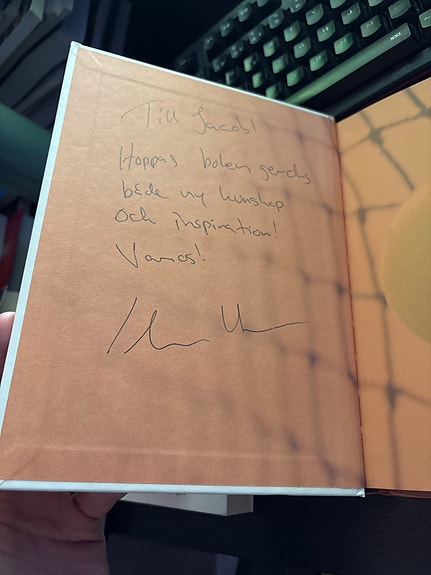 Till Jacob!
Hoppas boken gerdig
både ny kunskap
och inspiration!
Vamos!